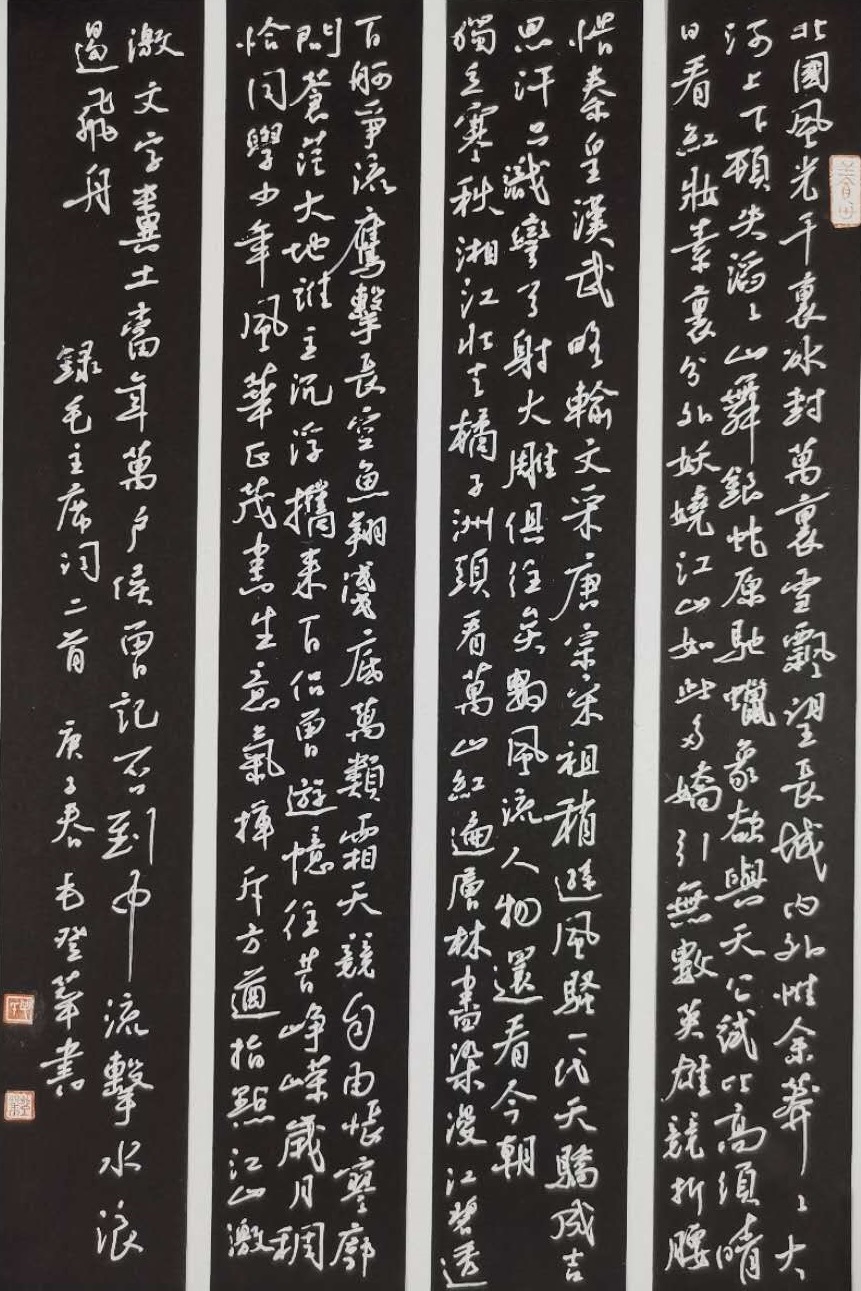 北國風光千裏冰封萬裏雪飄望長城内外惟余莽〻大
河上下頓失滔〻山舞銀蛇原馳蠟象欲與天公試比高須晴
日看紅妝素裹分外妖嬈江山如此多嬌引無數英雄競折腰
惜秦皇漢武略輸文采唐宗宋祖稍遜風騷一代天驕成吉
思汗只識彎弓射大雕俱往矣數風流人物還看今朝
獨立寒秋湘江北去橘子洲頭看萬山紅遍層林盡染漫江碧透
百舸爭流鷹擊長空魚翔淺底萬類霜天競自由悵寥廓
問蒼茫大地誰主沉浮攜來百侶曾遊憶往昔崢嶸歲月稠
恰同學少年風華正茂書生意氣揮斥方遒指點江山激
激文字糞土當年萬户侯曾記否到中流擊水浪
遏飛舟
錄毛主席詞二首 庚子春毛登華書